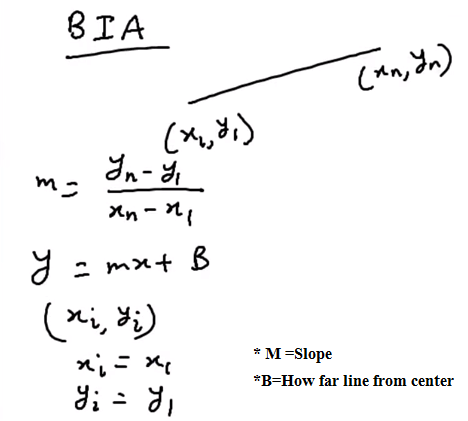 BIA
(xn, yn)
(x1, y1)
m = (yn - y1) / (xn - x1)
y = mx + B
(xi, yi)
xi = x1
yi = y1
* M =Slope
*B=How far line from center